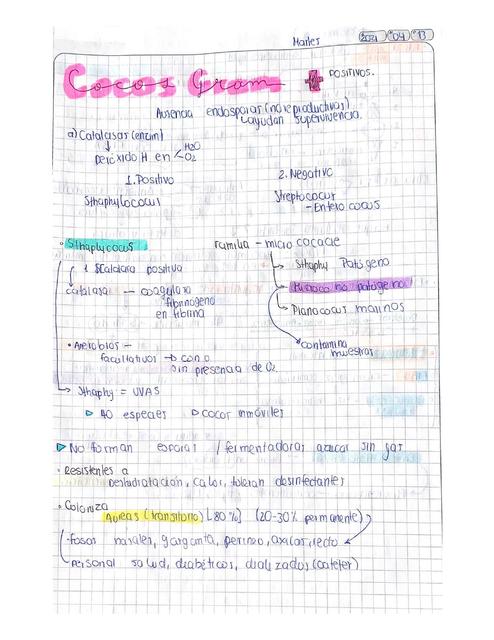 Martes 2021 04 13
Cocos Gram + POSITIVOS.
Ausencia endosporas (no reproductivas)
ayudan supervivencia.
a) Catalasas (enzim)
peróxido H en H2O
O2
1. Positivo
Sthaphylococus
2. Negativo
Streptococus
- Entero cocus
• Sthaphycocus
catalasa positiva
catalasa — coagulasa
fibrinógeno
en fibrina
Familia - micro cocacie
Sthaphy Patógeno
Micoco no patógeno
Planococus marinos
contamina
muestras
• Aerobios -
facultativos → con o
sin presencia de O2.
→ Sthaphy = UVAS
▷ 40 especies ▷ cocos inmóviles
▷ No forman esporas / fermentadoras azucar sin gas
• Resistentes a
Deshidratación, calor, toleran desinfectantes
• Coloniza
Aureas (transitorio) [80%] (20-30% permanente)
-fosas nasales, garganta, perineo, axilas, recto
-Personal salud, diabéticos, dializados (cateter)